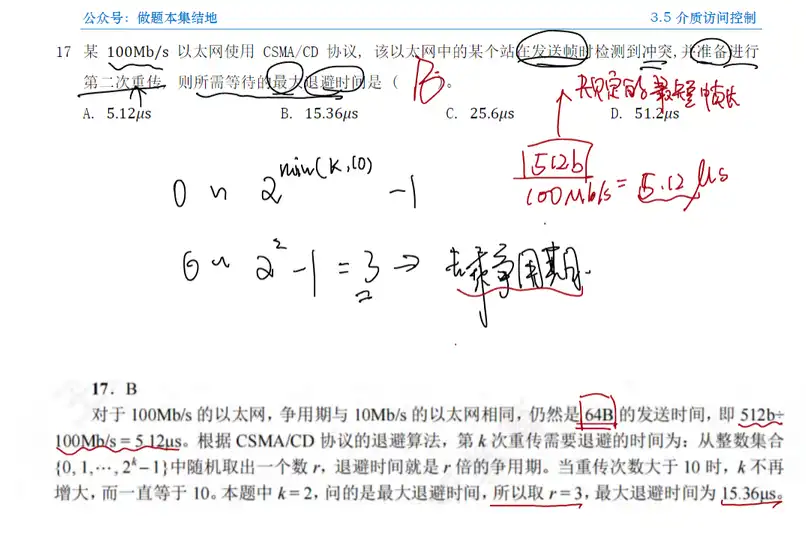 公众号：做题本集结地 3.5 介质访问控制
17 某 100Mb/s 以太网使用 CSMA/CD 协议，该以太网中的某个站在发送帧时检测到冲突，并准备进行
第二次重传，则所需等待的最大退避时间是（ B 。
A. 5.12μs B. 15.36μs C. 25.6μs D. 51.2μs
规定的最短帧长
512b
100Mb/s = 5.12 μs
0 ~ 2^min(k,10) -1
0 ~ 2^2 -1 = 3 ⇒ 去乘争用期
17. B
对于 100Mb/s 的以太网，争用期与 10Mb/s 的以太网相同，仍然是 64B 的发送时间，即 512b÷
100Mb/s = 5.12μs。根据 CSMA/CD 协议的退避算法，第 k 次重传需要退避的时间为：从整数集合
{0, 1,⋯, 2^k−1}中随机取出一个数 r，退避时间就是 r 倍的争用期。当重传次数大于 10 时，k 不再
增大，而一直等于 10。本题中 k = 2，问的是最大退避时间，所以取 r = 3，最大退避时间为 15.36μs。